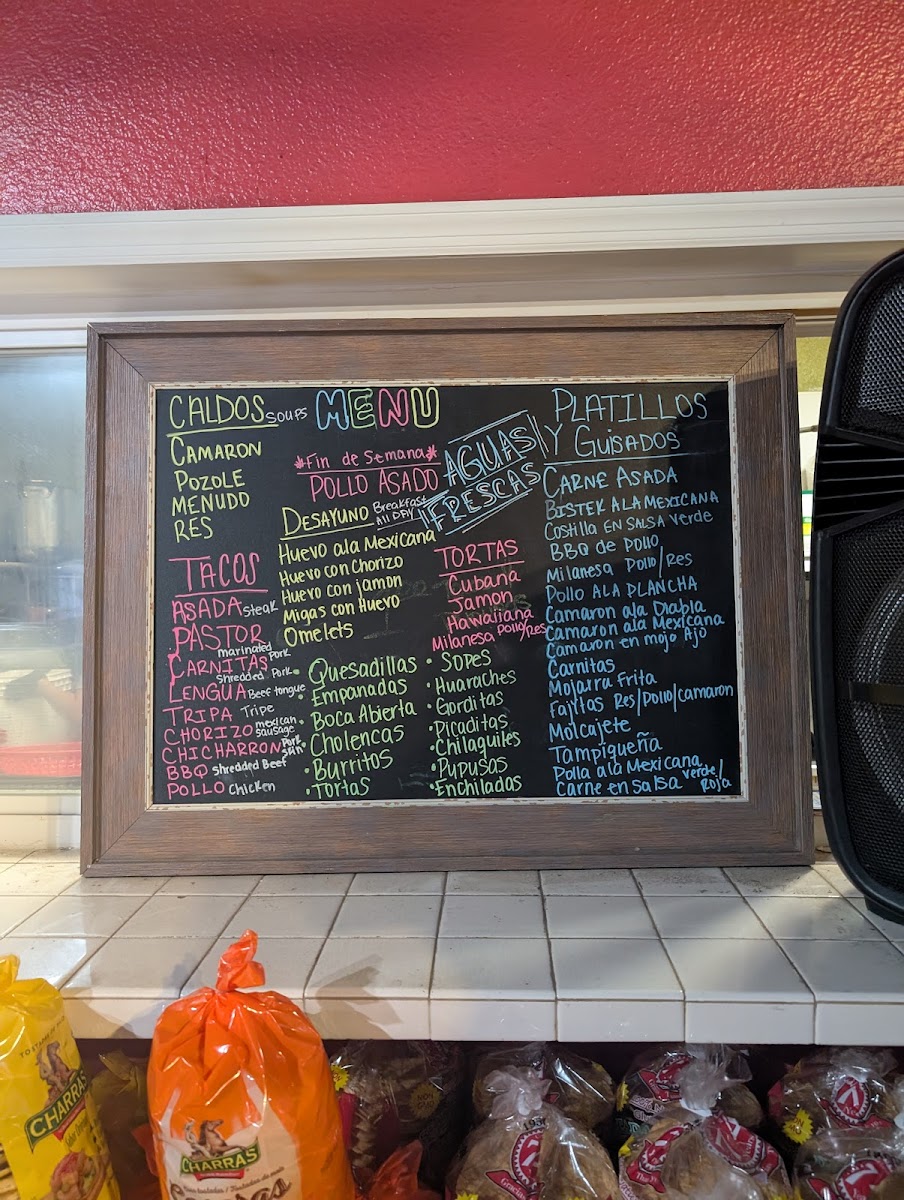 CALDOS SOUPS
CAMARON
POZOLE
MENUDO
RES
TACOS
ASADA Steak
PASTOR
marinated Pork
CARNITAS
shredded Pork
LENGUA Beef tongue
TRIPA Tripe
CHORIZO mexican sausage
CHICHARRON Pork skin
BBQ shredded Beef
POLLO Chicken
MENU
Fin de Semana
POLLO ASADO
AGUAS
FRESCAS
DESAYUNO Breakfast All DAY
Huevo ala Mexicana
Huevo con Chorizo
Huevo con jamon
Migas con Huevo
Omelets
• Quesadillas
• Empanadas
• Boca Abierta
• Cholencas
• Burritos
• Tortas
TORTAS
Cubana
Jamon
Hawaiiana
Milanesa Pollo/Res
• SOPES
• Huaraches
• Gorditas
• Picaditas
• Chilaquiles
• Pupusas
• Enchiladas
PLATILLOS
Y GUISADOS
CARNE ASADA
BISTEK ALA MEXICANA
Costilla EN SALSA verde
BBQ de pollo
Milanesa Pollo/Res
POLLO ALA PLANCHA
Camaron ala Diabla
Camaron ala Mexicana
Camaron en mojo Ajo
Carnitas
Mojarra Frita
Fajitas Res/Pollo/camaron
Molcajete
Tampiqueña
Polla ala Mexicana
Carne en salsa verde/Roja
CHARRAS
CHARRAS